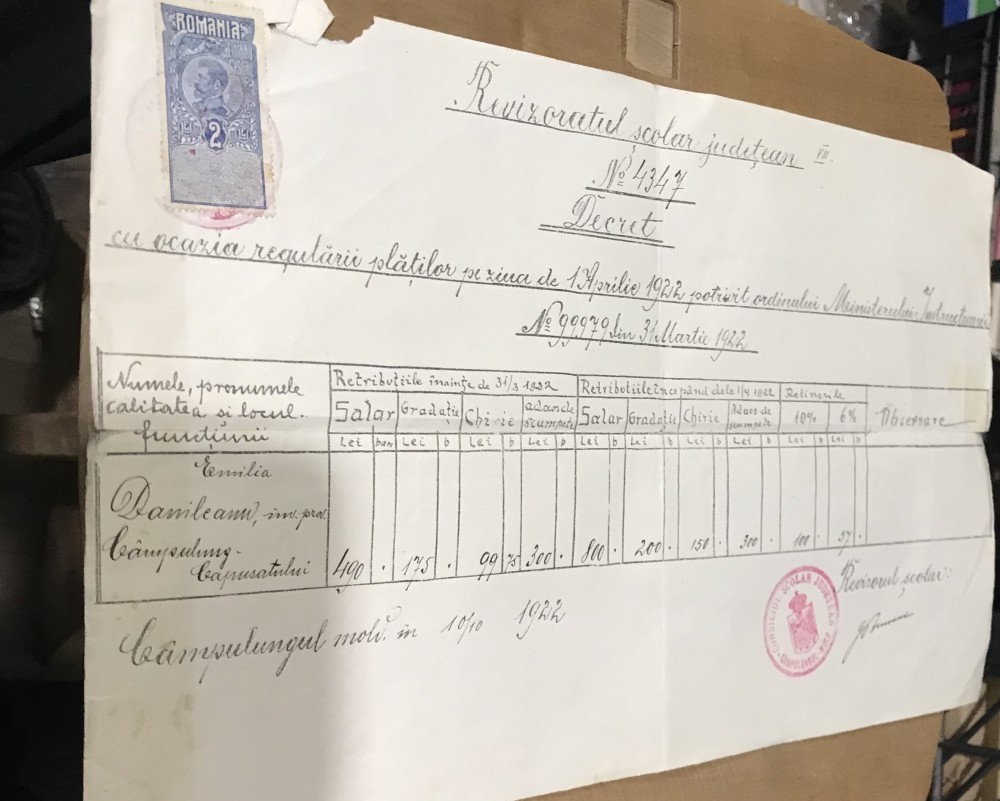 ROMANIA
2
Revizoratul școlar județean VII.
No 4347
Decret
cu ocazia regulării plăților pe ziua de 1 Aprilie 1922 potrivit ordinului Ministerului Instrucțiunii
No 99979 din 31 Martie 1922
Numele, pronumele calitatea si locul. funcțiunii
Retribuțiile înainte de 31/3 1922 Retribuțiile începând dela 1/4 1922 Retinerile Observare
Salar Gradație Chirie adaos de scumpete Salar Gradație Chirie Adaos de scumpete 10% 6%
Lei ban Lei b Lei b Lei b Lei b Lei b Lei b Lei b Lei b Lei b
Emilia
Danileanu, inv. prov.
Câmpulung-
Capusatului
490 . 175 . 99 75 300 . 800 . 200 . 150 . 300 . 100 . 57 .
Câmpulungul mold. in 10/10 1922
CONSILIUL ȘCOLAR JUDEȚEAN
CÂMPULUNGUL-MOLD
Revizorul școlar: